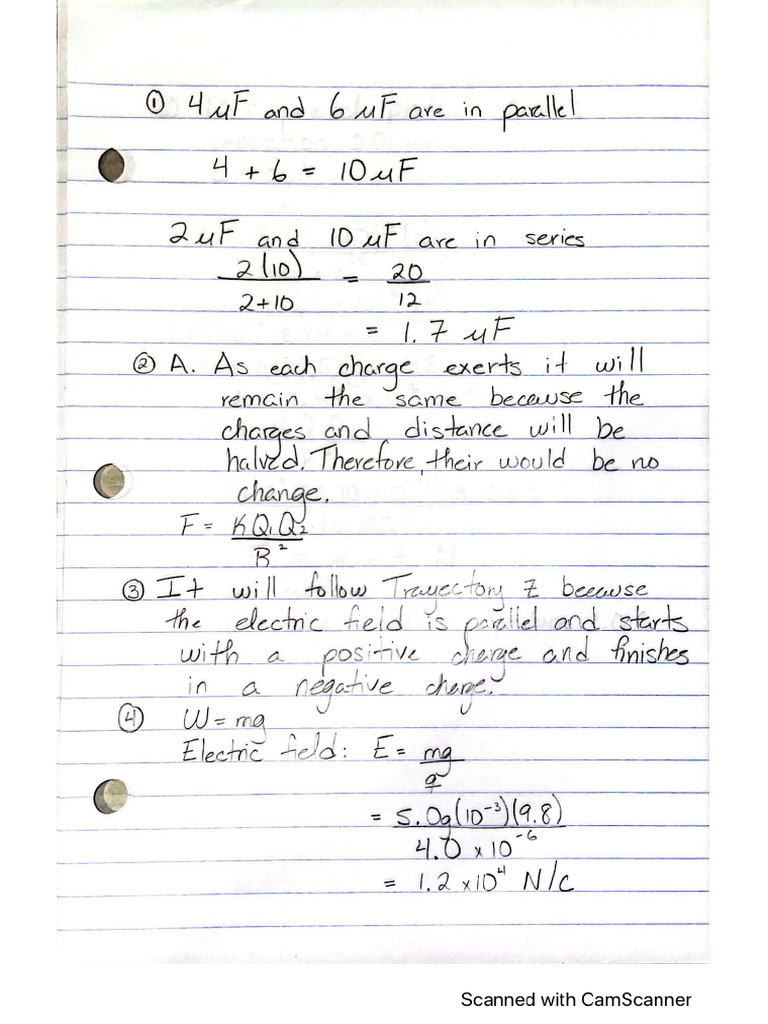 ① 4 uF and 6 uF are in parallel
4 + 6 = 10 uF
2 uF and 10 uF are in series
2(10) / 2+10 = 20 / 12
= 1.7 uF
② A. As each charge exerts it will
remain the same because the
charges and distance will be
halved. Therefore, their would be no
change.
F = KQ₁Q₂ / R²
③ It will follow Trayectory Z because
the electric field is parallel and starts
with a positive charge and finishes
in a negative charge.
④ W = mg
Electric field: E = mg / q
= 5.0g(10⁻³)(9.8) / 4.0 x 10⁻⁶
= 1.2 x10⁴ N/C
Scanned with CamScanner